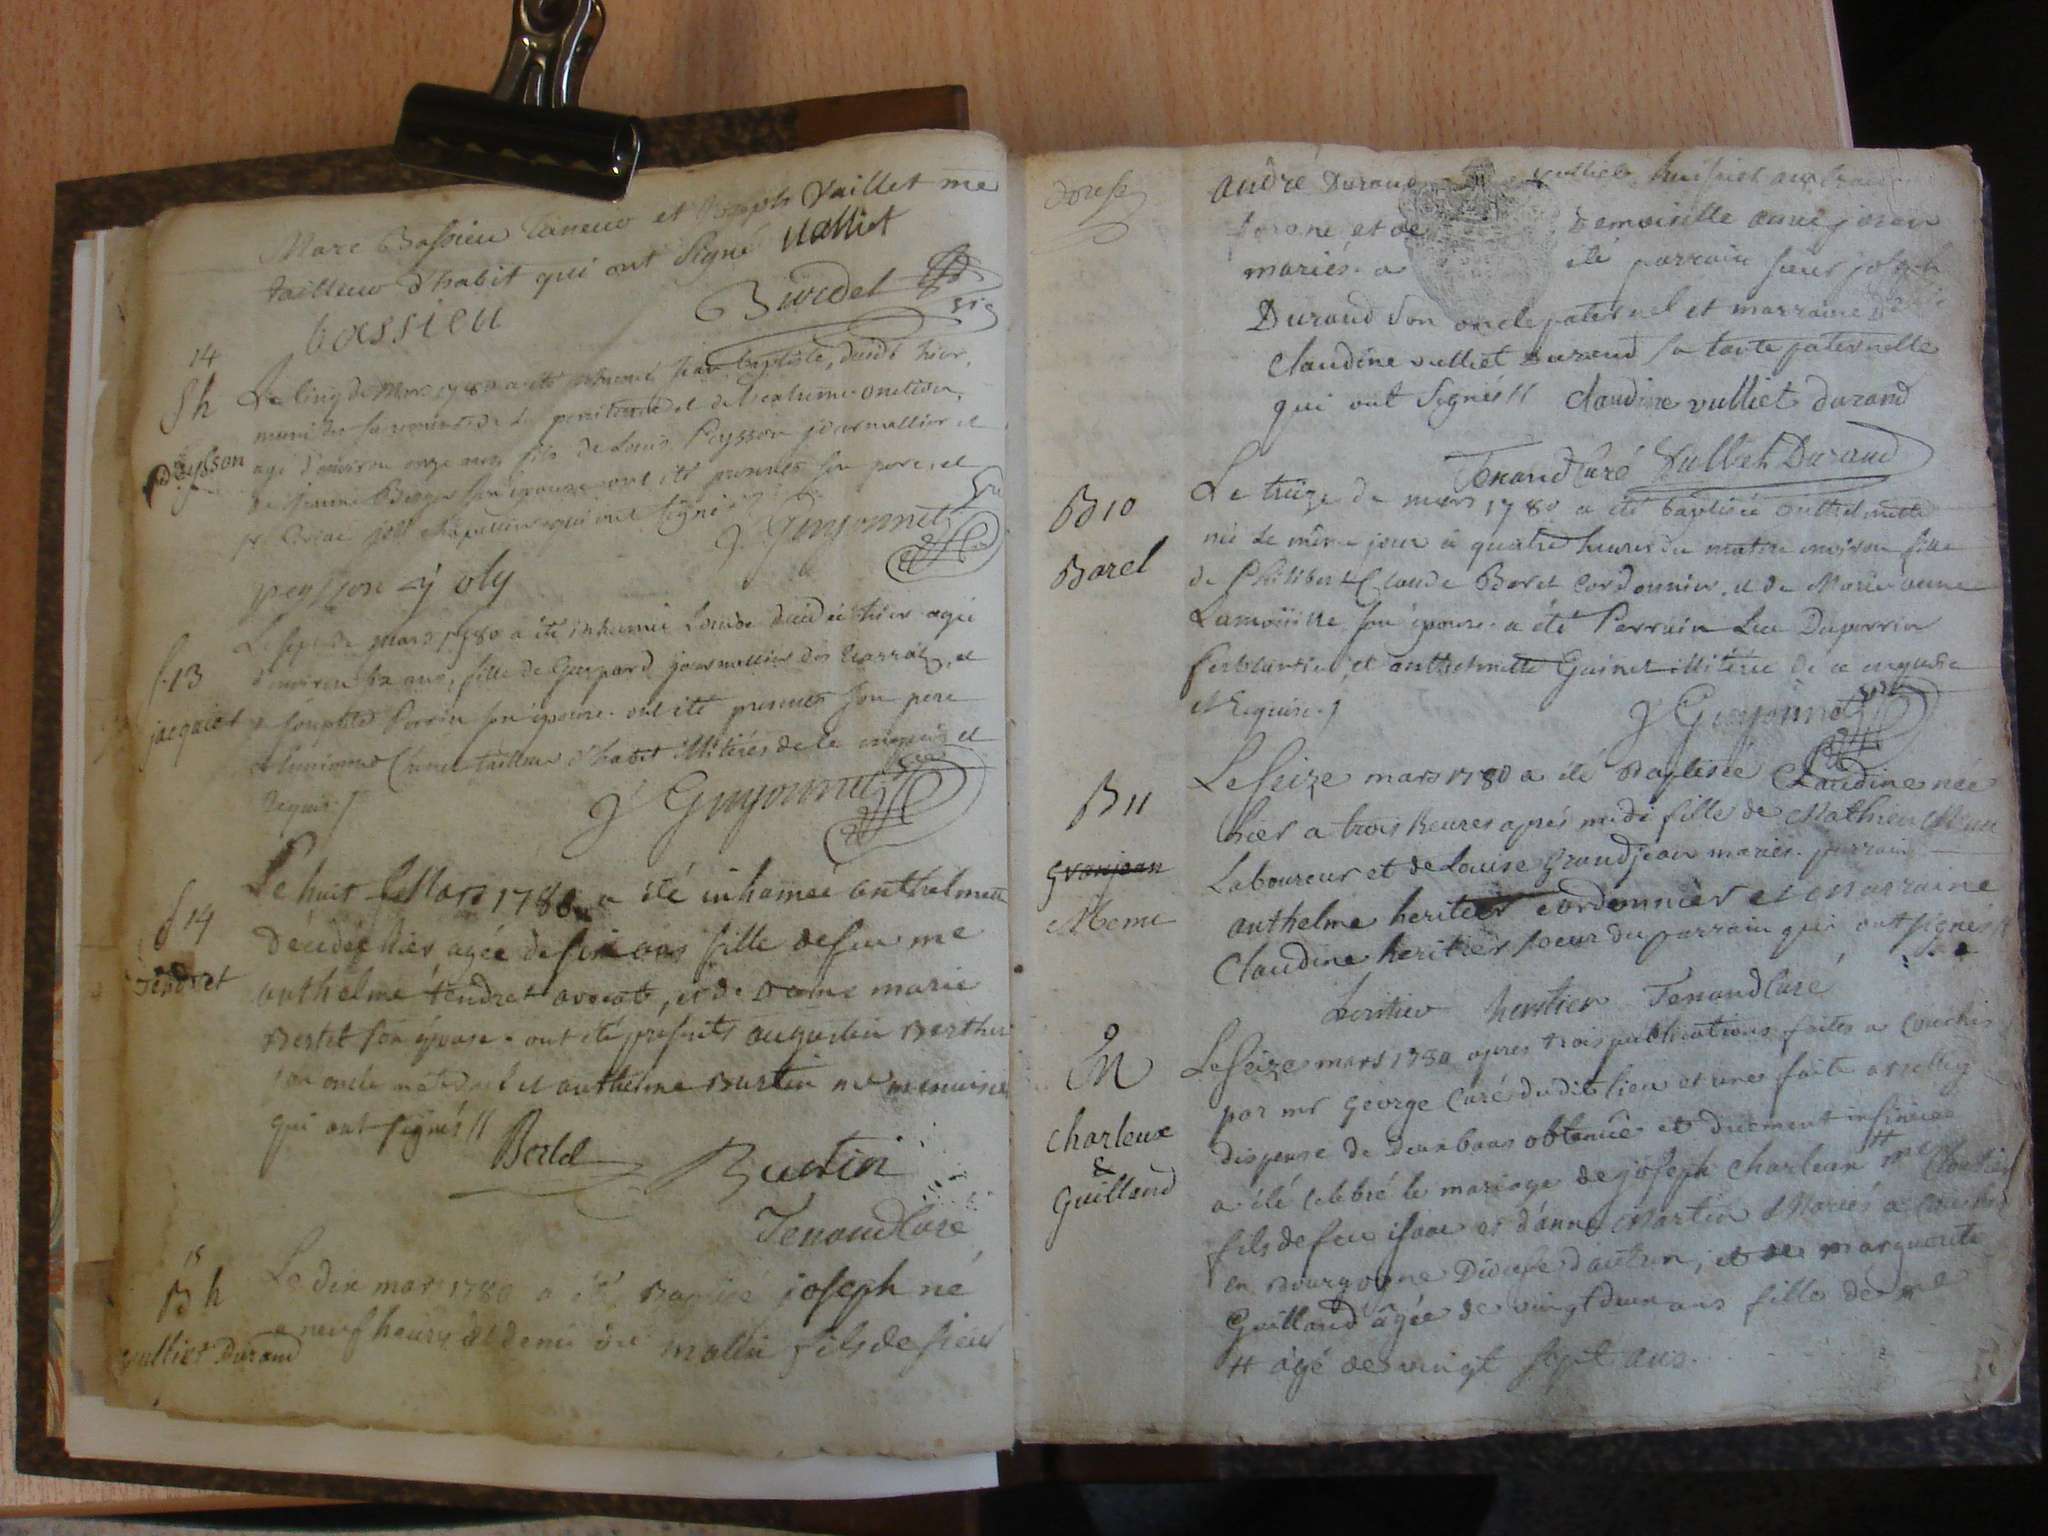 Marc Bassieu taneur et Joseph Vaillet me
tailleur d'habit qui ont signé Valliet
bassieu
Burdet
vic
14
Sh
Peysson
Le cinq de Mars 1780 a été inhumé jean baptiste, décédé hier,
muni des sacrements de la penitence et de l'extreme onction,
agé d'environ onze ans, fils de Louis Peysson journallier et
de jeanne Berger son épouse ont été presents son pere, et
joli chapellier qui ont signé
J. Guyonnet
vic
peysson joly
S. 13
jacquiet
Le sept de mars 1780 a été inhumée Louise décédée hier agée
d'environ six ans, fille de Gaspard journallier des et
de Perrin son épouse. ont été presents son pere
et tailleur d'habit illitérés de ce enquis et
requis./
J. Guyonnet vic
S 14
Tendret
Le huit Mars 1780 a été inhumée anthelmette
décédée hier agée de six ans fille de feu me
anthelme tendret avocat, et de Dame marie
Bertet son épouse. ont été présents augustin Berthet
son oncle maternel et anthelme Burtin me menuisier
qui ont signés //
Bertet Burtin
Tenand Curé
15
B h
vulliet Durand
Le dix mars 1780 a été Baptisé joseph né
a neuf heures et demie du matin fils de sieur
andré Durand vulliet huissier au
et de Demoiselle anne
mariés. a été parrain sieur joseph
Durand son oncle paternel et marraine De
Claudine vulliet Durand sa tante paternelle
qui ont signés // claudine vulliet durand
Tenand Curé Vulliet Durand
B 10
Borel
Le treize de mars 1780 a été baptisée anthelmette
née le même jour à quatre heures du matin environ fille
de Philibert Claude Borel cordonnier, et de Marie anne
Lamouille son épouse. a été Parrain Luc Duperrin
ferblantier, et anthelmette Guinet illitérée de ce enquise
et requise./
J. Guyonnet vic
B 11
Granjean
Meme
Le seize mars 1780 a été Baptisée Claudine née
hier a trois heures après midi fille de Mathieu
Laboureur et de Louise Grandjean mariés. parrain
anthelme heritier cordonnier et marraine
Claudine heritier soeur du parrain qui ont signés //
heritier Tenand Curé
M
Charleux
&
Guilland
Le seize mars 1780 apres trois publications faites a Couches
par mr George Curé dudit lieu et une faite a Belley
dispense de deux bans obtenue et duement insinuée
a été celebré le mariage de joseph Charleux # me
fils de feu isaac et d'anne Martin Mariés a Couches
en Bourgogne Diocese d'autun, et de marguerite
Guilland âgée de vingt deux ans fille de me
# agé de vingt sept ans.